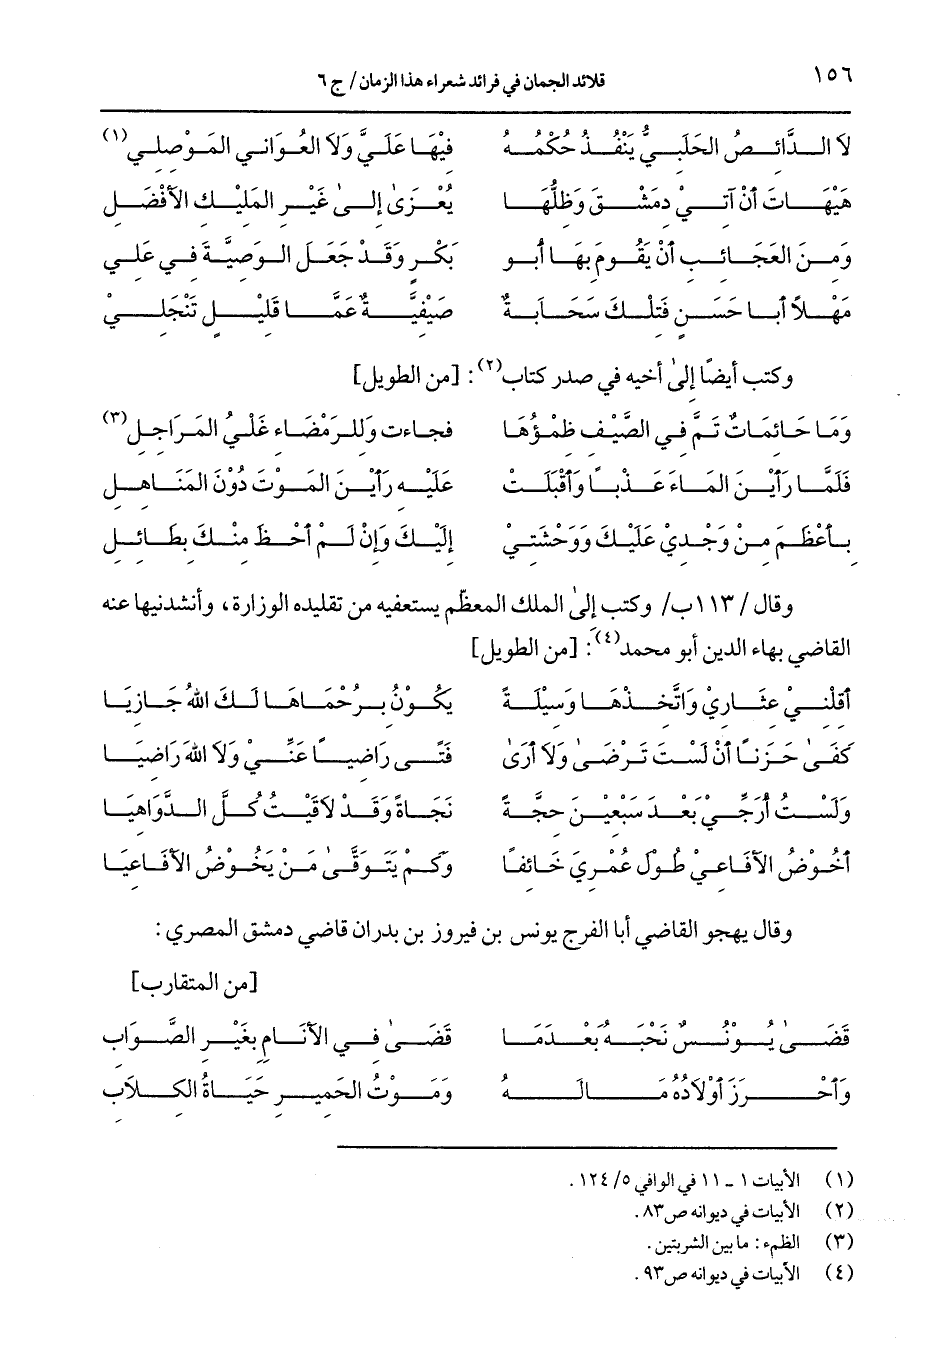 ١٥٦
قلائد الجمان في فرائد شعراء هذا الزمان / ج ٦
لَا الـدَّائِـصُ الحَلَبِـيُّ يَنْفُـذُ حُكْمُـهُ فِيْهَا عَلَيَّ وَلَا الغُوَانِي المَوْصِلِي(١)
هَيْهَاتَ أَنْ آتِي دِمَشْقَ وَظِلُّهَا يُعْزَىٰ إِلىٰ غَيْرِ المَلِيْكِ الأَفْضَلِ
وَمِنَ العَجَائِبِ أَنْ يَقُومَ بِهَا أَبُو بَكْرٍ وَقَدْ جَعَلَ الوَصِيَّةَ فِي عَلِي
مَهْلاً أَبا حَسَنٍ فَتِلْكَ سَحَابَةٌ صَيْفِيَّةٌ عَمَّا قَلِيْلٍ تَنْجَلِيْ
وكتب أيضًا إلىٰ أخيه في صدر كتاب(٢): [من الطويل]
وَمَا حَائِمَاتٌ تَمَّ فِي الصَّيْفِ ظِمْؤُهَا فَجاءت وَلِلرَمْضَاءِ غَلْيُ المَرَاجِلِ(٣)
فَلَمَّا رَأَيْنَ المَاءَ عَذْبًا وَأَقْبَلَتْ عَلَيْهِ رَأَيْنَ المَوْتَ دُوْنَ المَنَاهِلِ
بِأَعْظَمَ مِنْ وَجْدِي عَلَيْكَ وَوَحْشَتِيْ إِلَيْكَ وَإِنْ لَمْ أَحْظَ مِنْكَ بِطَائِلِ
وقال /١١٣ب/ وكتب إلىٰ الملك المعظّم يستعفيه من تقليده الوزارة، وأنشدنيها عنه
القاضي بهاء الدين أبو محمد(٤): [من الطويل]
أَقِلْنِيْ عِثَارِيْ وَاتَّخِذْهَا وَسِيْلَةً يَكُوْنُ بِرُحْمَاهَا لَكَ اللهُ جَازِيَا
كَفَىٰ حَزَنًا أَنْ لَسْتَ تَرْضَىٰ وَلَا أَرَىٰ فَتًى رَاضِيًا عَنِّيْ وَلَا اللهَ رَاضِيَا
وَلَسْتُ أُرَجِّي بَعْدَ سَبْعِيْنَ حِجَّةً نَجَاةً وَقَدْ لَاقَيْتُ كُلَّ الدَّوَاهِيَا
أَخُوْضُ الأَفَاعِيْ طُوْلَ عُمْرِيَ خَائِفًا وَكَمْ يَتَوَقَّىٰ مَنْ يَخُوْضُ الأَفَاعِيَا
وقال يهجو القاضي أبا الفرج يونس بن فيروز بن بدران قاضي دمشق المصري:
[من المتقارب]
قَضَىٰ يُوْنُسٌ نَحْبَهُ بَعْدَمَا قَضَىٰ فِي الأَنَامِ بِغَيْرِ الصَّوَابِ
وَأَحْرَزَ أَوْلَادُهُ مَالَهُ وَمَوْتُ الحَمِيرِ حَيَاةُ الكِلَابِ
(١) الأبيات ١ - ١١ في الوافي ٥/ ١٢٤.
(٢) الأبيات في ديوانه ص٨٣.
(٣) الظمء: ما بين الشربتين.
(٤) الأبيات في ديوانه ص٩٣.